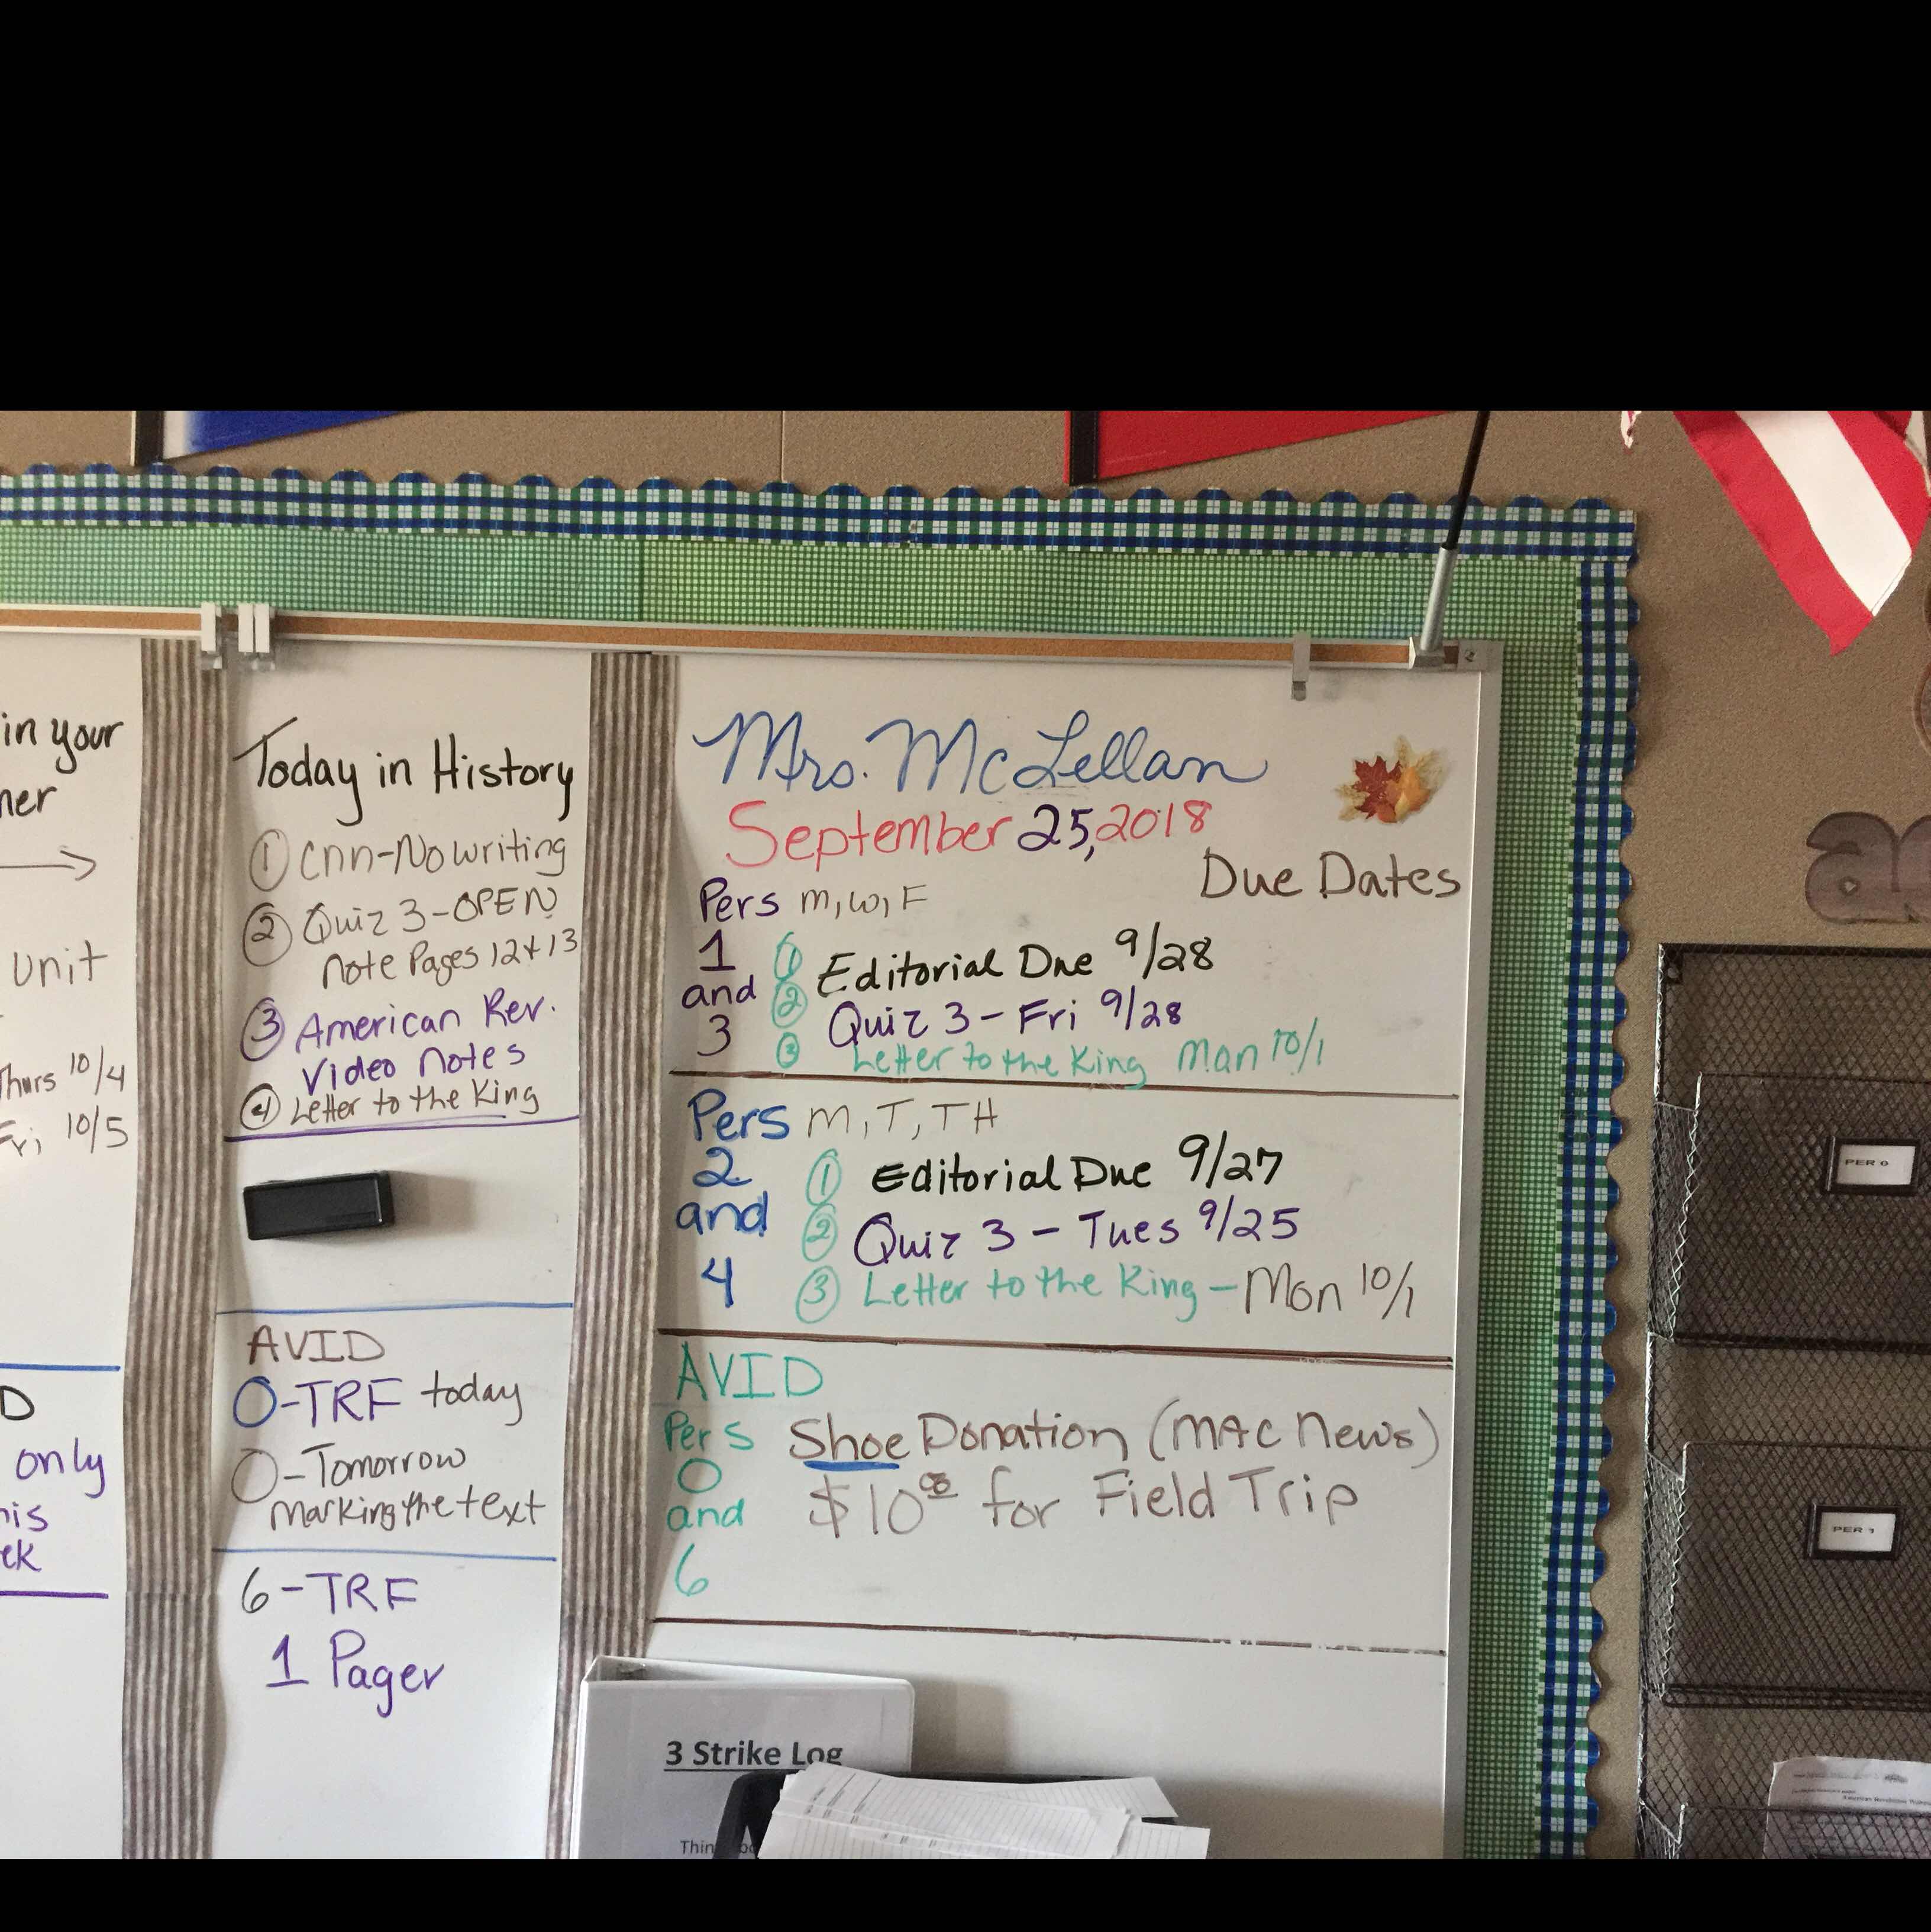 in your
ner
unit
Thurs 10/4
Fri 10/5
D
only
his
ek
Today in History
① Cnn-No writing
② Quiz 3-OPEN
note Pages 12+13
③ American Rev.
Video notes
④ Letter to the King
AVID
0-TRF today
0-Tomorrow
marking the text
6-TRF
1 Pager
Mrs. McLellan
September 25, 2018
Due Dates
Pers M, W, F
1
and
3
① Editorial Due 9/28
② Quiz 3 - Fri 9/28
③ Letter to the King Mon 10/1
Pers M, T, TH
2
and
4
① Editorial Due 9/27
② Quiz 3 - Tues 9/25
③ Letter to the King - Mon 10/1
AVID
Pers
0
and
6
Shoe Donation (MAC News)
$10.00 for Field Trip
3 Strike Log
PER 0
PER 1
2